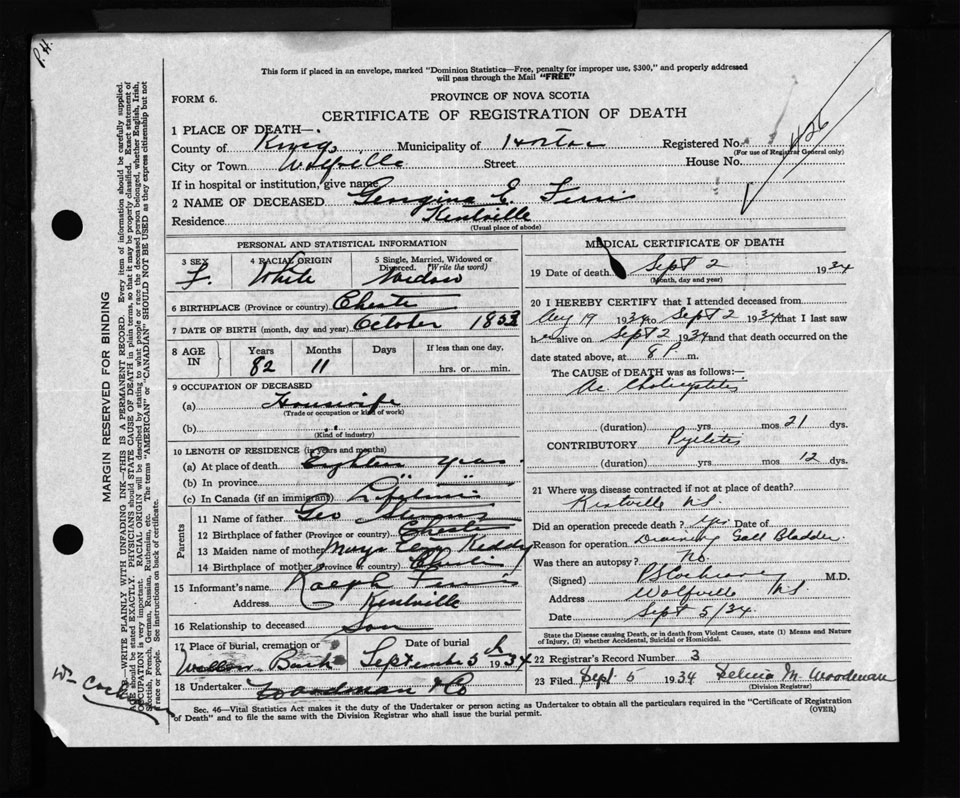 P. H.
This form if placed in an envelope, marked "Dominion Statistics—Free, penalty for improper use, $300," and properly addressed
will pass through the Mail "FREE"
FORM 6.
PROVINCE OF NOVA SCOTIA
CERTIFICATE OF REGISTRATION OF DEATH
426
1 PLACE OF DEATH—
County of Kings Municipality of Horton Registered No.
(For use of Registrar General only)
City or Town Wolfville Street House No.
If in hospital or institution, give name
2 NAME OF DECEASED Georgina E.
Residence Kentville
(Usual place of abode)
PERSONAL AND STATISTICAL INFORMATION
3 SEX F. 4 RACIAL ORIGIN White 5 Single, Married, Widowed or Divorced. (Write the word) Widow
6 BIRTHPLACE (Province or country) Chester
7 DATE OF BIRTH (month, day and year) October
8 AGE IN Years 82 Months 11 Days If less than one day, hrs. or min.
9 OCCUPATION OF DECEASED
(a) Housewife
(Trade or occupation or kind of work)
(b)
(Kind of industry)
10 LENGTH OF RESIDENCE (in years and months)
(a) At place of death Eighteen years
(b) In province " "
(c) In Canada (if an immigrant) Lifetime
Parents
11 Name of father Geo Stevens
12 Birthplace of father (Province or country) Chester
13 Maiden name of mother Mary Keddy
14 Birthplace of mother (Province or country) Chester
15 Informant's name Ralph
Address Kentville
16 Relationship to deceased Son
17 Place of burial, cremation or Date of burial
September 5th 1934
18 Undertaker Woodman & Co
MEDICAL CERTIFICATE OF DEATH
19 Date of death Sept 2 1934
(Month, day and year)
20 I HEREBY CERTIFY that I attended deceased from
Aug 19 1934 to Sept 2 1934 that I last saw
her alive on Sept 2 1934 and that death occurred on the
date stated above, at 8 P. m.
The CAUSE OF DEATH was as follows:—
Ac. Cholecystitis
(duration) yrs. mos 21 dys.
CONTRIBUTORY Pyelitis
(duration) yrs mos 12 dys.
21 Where was disease contracted if not at place of death?
Kentville N.S.
Did an operation precede death? Yes Date of
Reason for operation Draining Gall Bladder
Was there an autopsy? No.
(Signed) P S Cochrane M.D.
Address Wolfville N.S.
Date Sept 5/34
State the Disease causing Death, or in death from Violent Causes, state (1) Means and Nature
of Injury, (2) whether Accidental, Suicidal or Homicidal.
22 Registrar's Record Number 3
23 Filed Sept. 5 1934 M. Woodman
(Division Registrar)
Sec. 46—Vital Statistics Act makes it the duty of the Undertaker or person acting as Undertaker to obtain all the particulars required in the "Certificate of Registration
of Death" and to file the same with the Division Registrar who shall issue the burial permit.
(OVER)
MARGIN RESERVED FOR BINDING
WRITE PLAINLY WITH UNFADING INK—THIS IS A PERMANENT RECORD. Every item of information should be carefully supplied.
AGE should be stated EXACTLY. PHYSICIANS should STATE CAUSE OF DEATH in plain terms, so that it may be properly classified. Exact statement of
OCCUPATION is very important. RACIAL ORIGIN will be described by stating to what people or race the deceased person belonged, whether English, Irish,
Scottish, French, German, Russian, Ruthenian, etc. The terms "AMERICAN" or "CANADIAN" SHOULD NOT BE USED as they express citizenship but not
a race or people. See instructions on back of certificate.